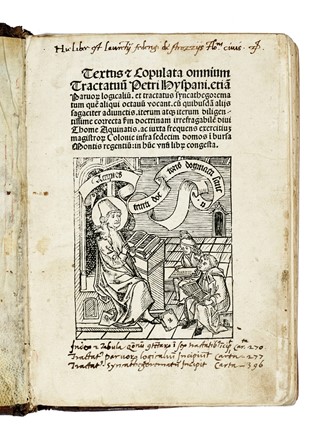 Hic liber est laurentij
Textus & Copulata omnium
Tractatuū Petri Hyspani. etiā
Paruoꝝ logicaliū. et tractatus syncathegorema
tum quē aliqui octauū vocant. cū quibusdā alijs
sagaciter adiunctis. iterum atqꝫ iterum diligen
tissime correcta ƒm doctrinam irrefragabilē diui
Thome Aquinatis. ac iuxta frequens exercitiuꝫ
magistroꝝ Colonie infra sedecim domos ī bursa
Montis regentiū: in hūc vnū librū congesta.
Index et Tabula Car. 270
Tractatꝰ paruorꝫ logicaliū Incipiūt Carta — 277
Tractatꝰ Syncathegorematū Incipit Carta — 396